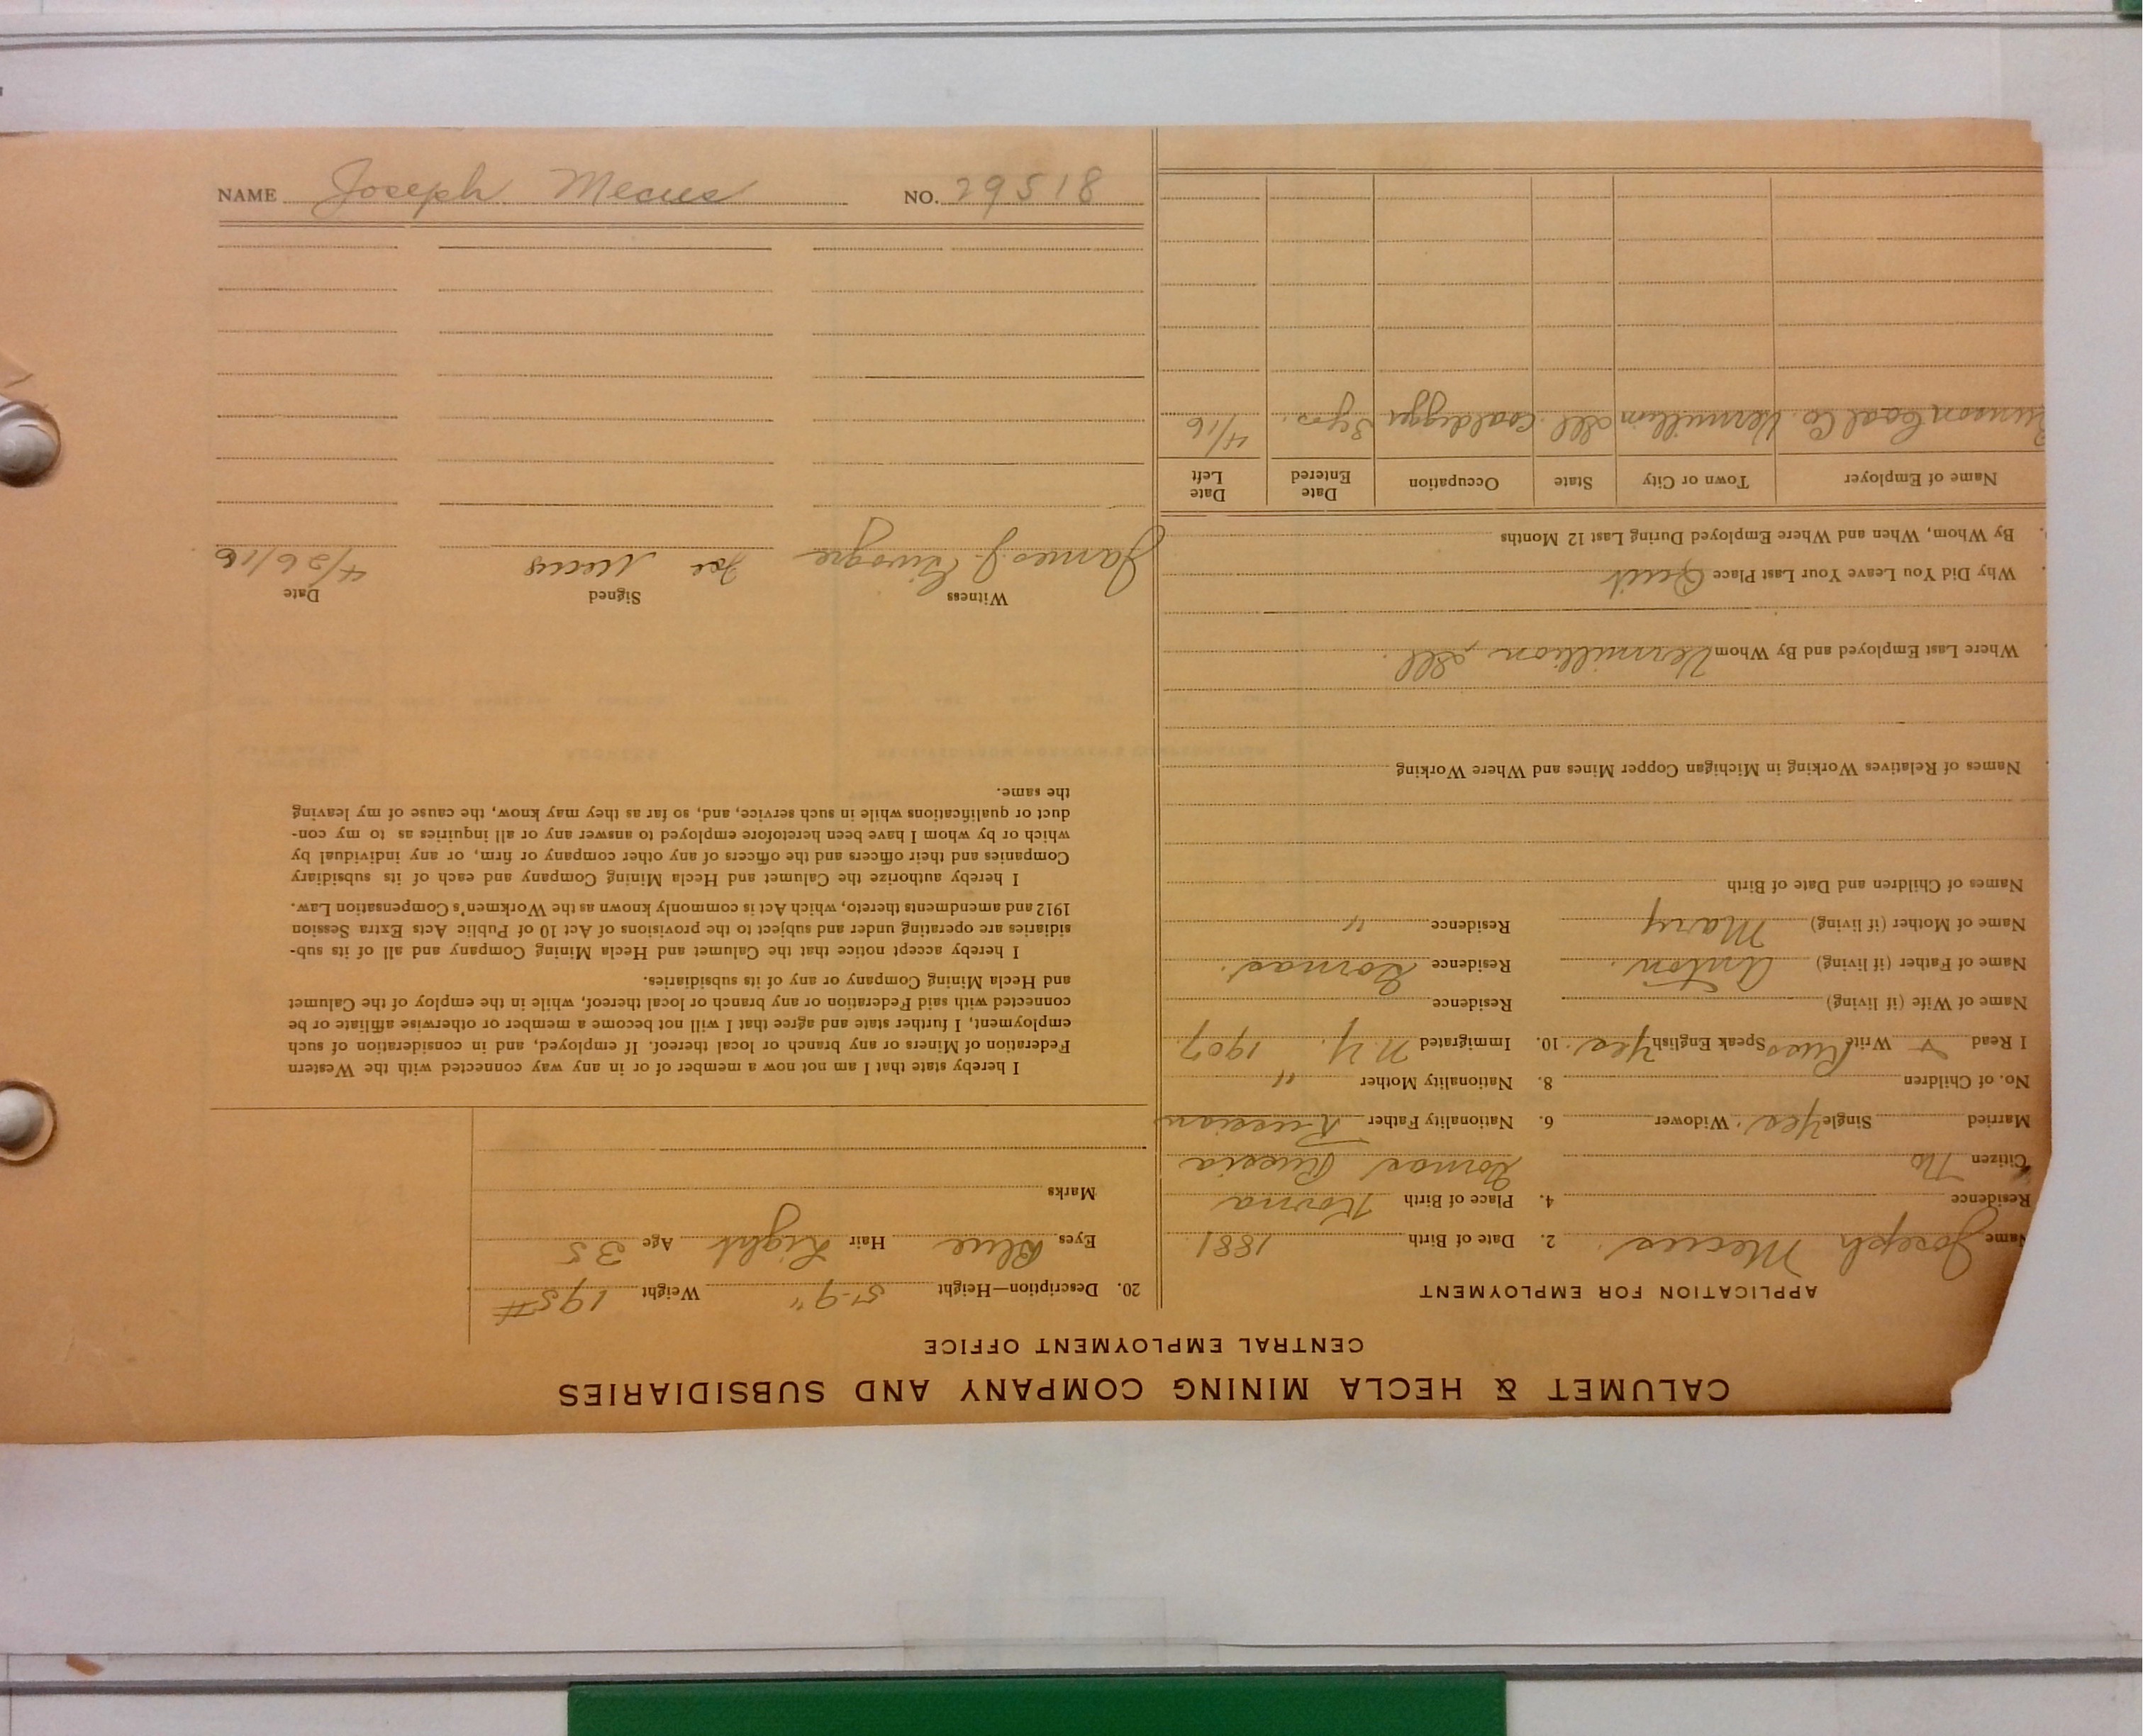 NAME Joseph Mecus NO. 29518
CALUMET & HECLA MINING COMPANY AND SUBSIDIARIES
CENTRAL EMPLOYMENT OFFICE
APPLICATION FOR EMPLOYMENT
Name Joseph Mecus 2. Date of Birth 1881
Residence 4. Place of Birth
Citizen No Russia
Married Single Yes. Widower 6. Nationality Father Russian
No. of Children 8. Nationality Mother "
I Read Write Russ Speak English Yes. 10. Immigrated N.Y. 1907
Name of Wife (if living) Residence
Name of Father (if living) Anton. Residence
Name of Mother (if living) Mary Residence "
Names of Children and Date of Birth
Names of Relatives Working in Michigan Copper Mines and Where Working
Where Last Employed and By Whom Vermillion, Ill.
Why Did You Leave Your Last Place Quit
By Whom, When and Where Employed During Last 12 Months
Name of Employer Town or City State Occupation Date Entered Date Left
Coal Co. Vermillion Ill. Coaldigger 3 yrs. 4/16
20. Description—Height 5'-9" Weight 195#
Eyes Blue Hair Light Age 35
Marks
I hereby state that I am not now a member of or in any way connected with the Western
Federation of Miners or any branch or local thereof. If employed, and in consideration of such
employment, I further state and agree that I will not become a member or otherwise affiliate or be
connected with said Federation or any branch or local thereof, while in the employ of the Calumet
and Hecla Mining Company or any of its subsidiaries.
I hereby accept notice that the Calumet and Hecla Mining Company and all of its sub-
sidiaries are operating under and subject to the provisions of Act 10 of Public Acts Extra Session
1912 and amendments thereto, which Act is commonly known as the Workmen's Compensation Law.
I hereby authorize the Calumet and Hecla Mining Company and each of its subsidiary
Companies and their officers and the officers of any other company or firm, or any individual by
which or by whom I have been heretofore employed to answer any or all inquiries as to my con-
duct or qualifications while in such service, and, so far as they may know, the cause of my leaving
the same.
Witness Signed Date
James J. Joe Mecus 4/26/16